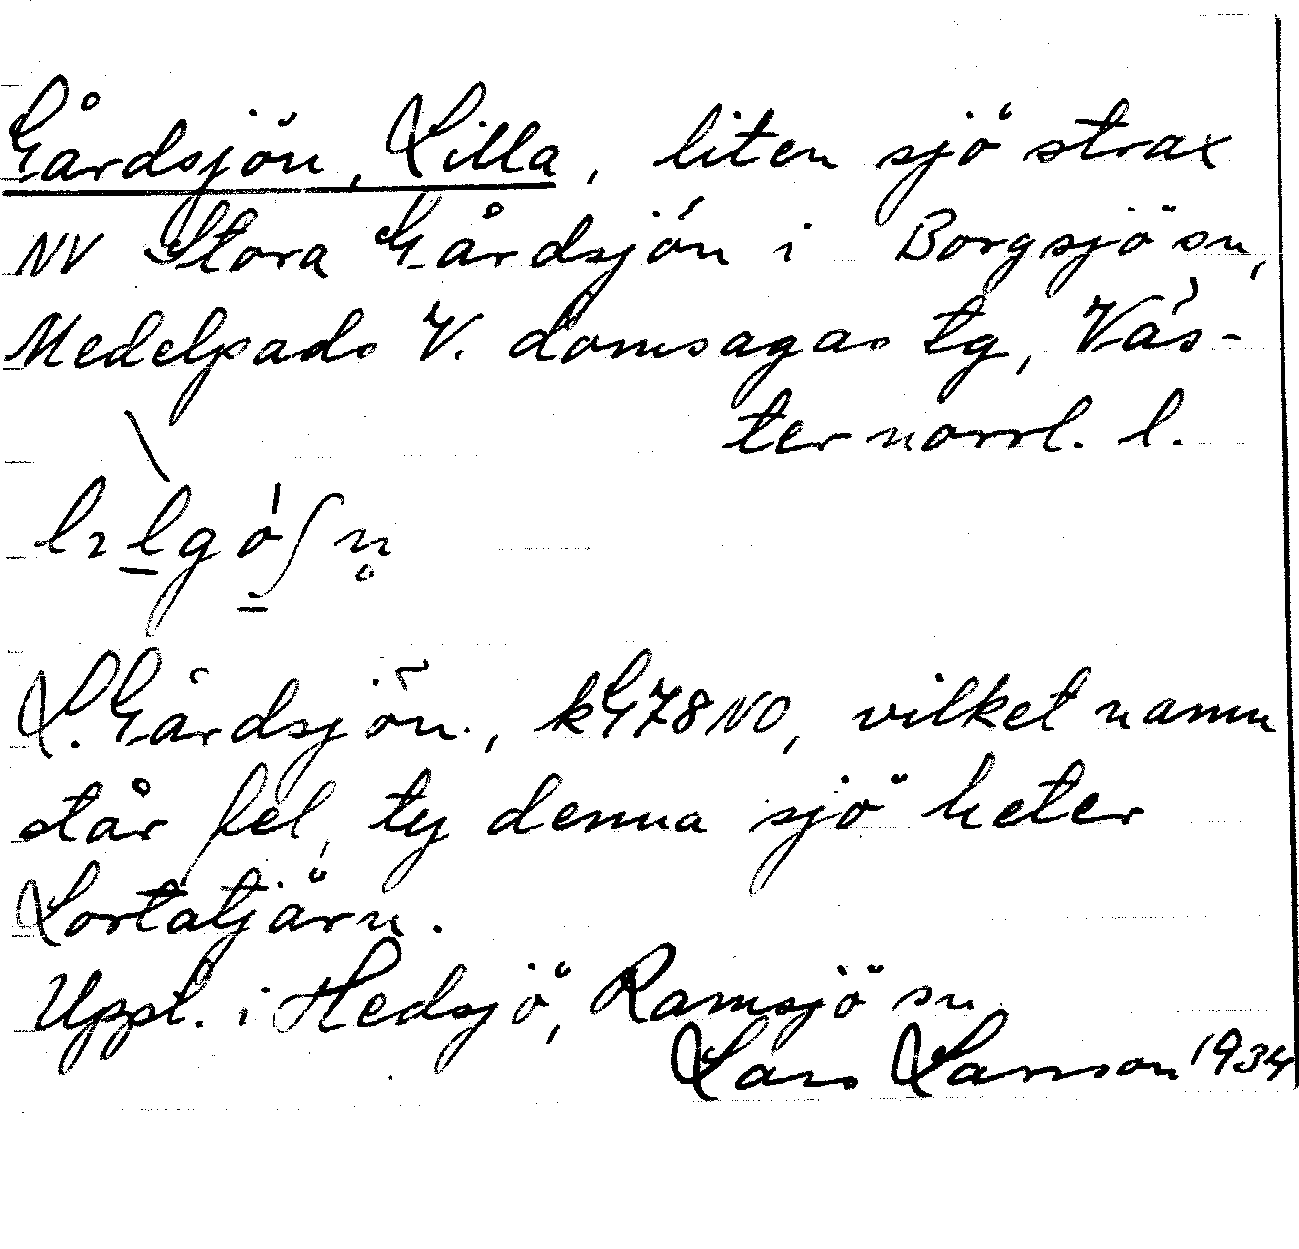 Gårdsjön, Lilla, liten sjö strax
NV Stora Gårdsjön i Borgsjö sn,
Medelpads V. domsagas tg, Väs-
ternorrl. l.
L. Gårdsjön., kG78NO, vilket namn
står fel, ty denna sjö heter
Lortatjärn.
Uppl. i Hedsjö, Ramsjö sn
Lars Larsson 1934